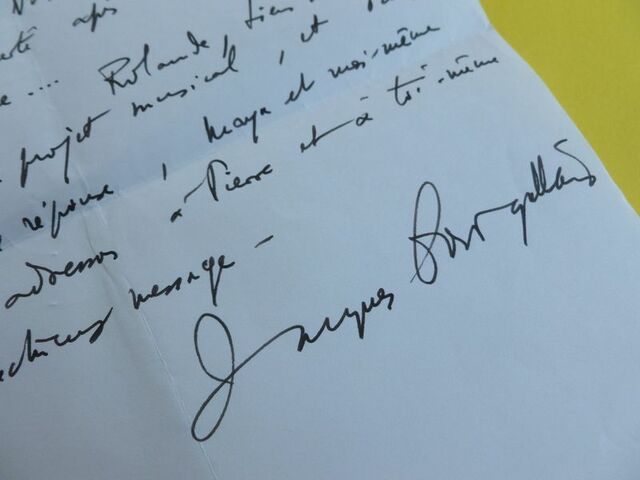 apis
e .... Rolande,
projet musical, et
réponse, Maya et moi-même
adresses à Pierre et à toi-même
message -
Jacques